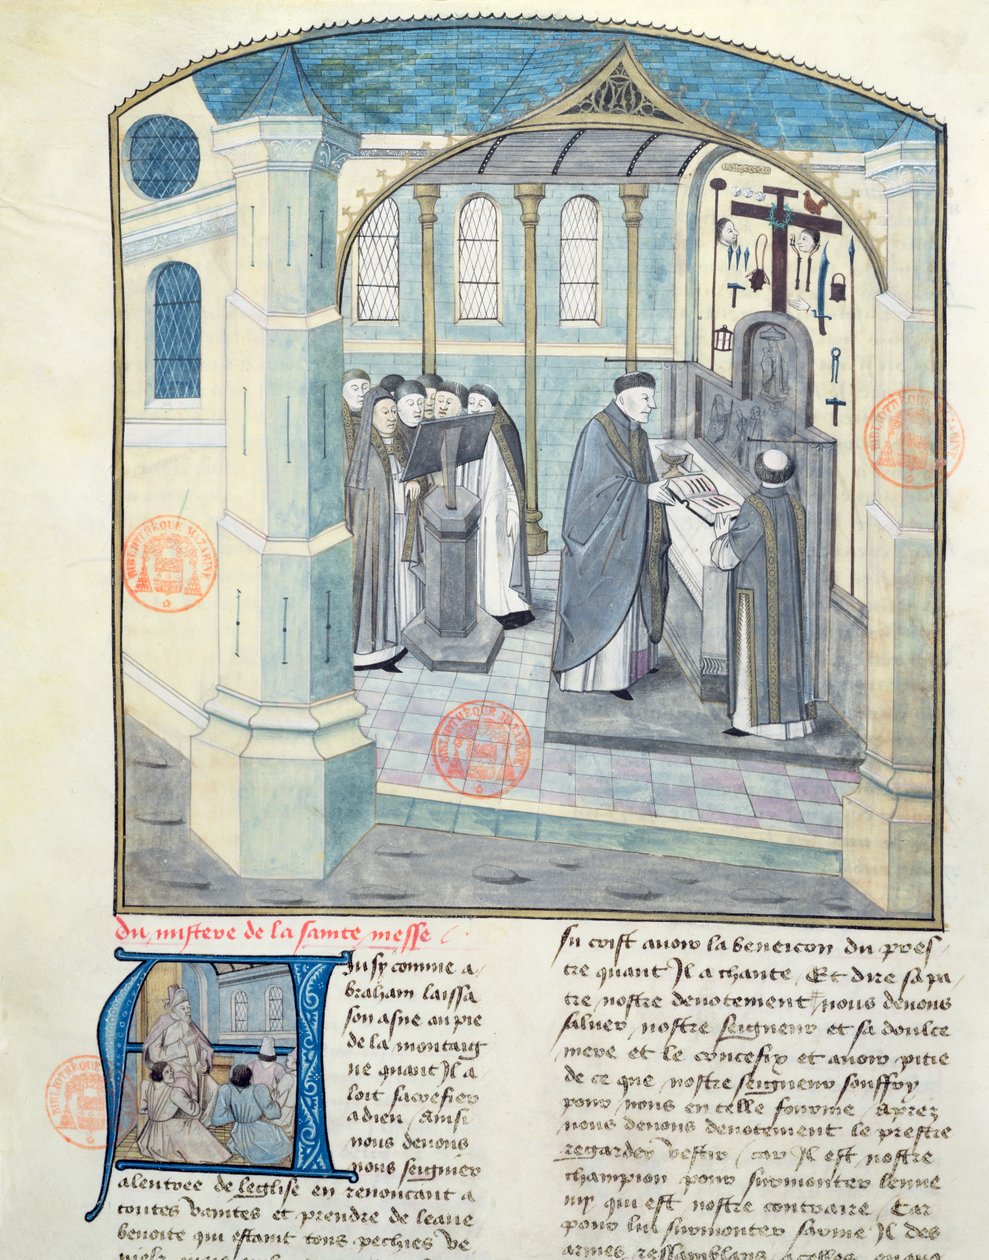 BIBLIOTHÈQUE MAZARINE
BIBLIOTHÈQUE MAZARINE
BIBLIOTHÈQUE MAZARINE
BIBLIOTHÈQUE MAZARINE
du mistere de la sainte messe
Ainsy comme a-
braham laissa
son asne au pie
de la montaig
ne quant Il a-
loit sacrefier
a dieu Ainsi
nous deuons
nous seignier
a lentree de leglise en renoncant a
toutes vanites et prendre de leaue
benoite qui estaint tous pechies ve
su crist auoir la beneicon du pres-
tre quant Il a chante Et dire sa pa-
tre nostre deuotement nous deuons
saluer nostre seigneur et sa doulce
mere et le concefix et auoir pitie
de ce que nostre seigneur souffry
pour nous en telle fourme Aprez
nous deuons deuotement le prestre
regarder vestir car Il est nostre
champion pour surmonter lenne
my qui est nostre contraire Car
pour lui surmonter sarme Il des
armes ressamblans a celles